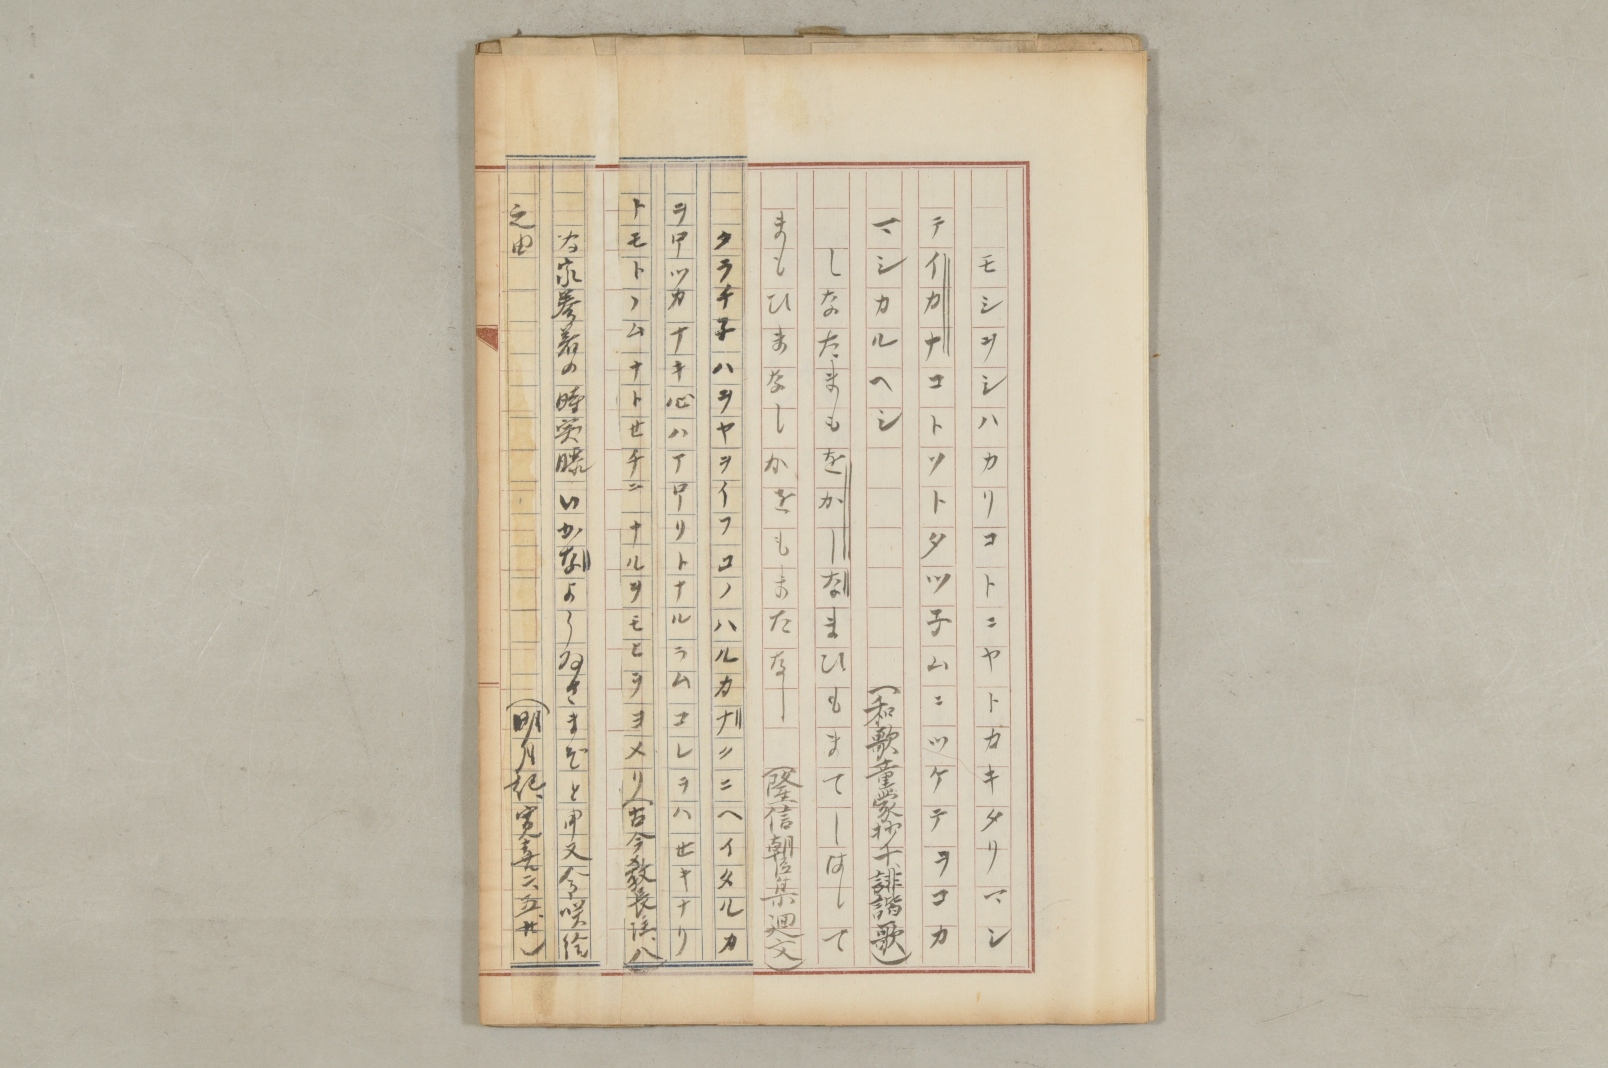 モシヨシハカリコトニヤトカキタリマシ
テイカナコトソトタツ子ムニツケテヲコカ
マシカルヘシ
(和歌童蒙抄十誹諧歌)
しなたまもをかしなまひもまてしはして
まもひまなしかをもまたなし
(隆信朝臣集廻文)
タラチ子ハヲヤヲイフコノハルカナルニヘイタルカ
ヲロツカナキ心ハアロリトナルラムコレヲハセキナリ
トモトノムナトセチニナルヲモヒヲヨメリ(古今教長注、八)
為家参着の時実勝いかなようゐさまぞと申又令咲給
之由
(明月記、寛喜二、五、廿)